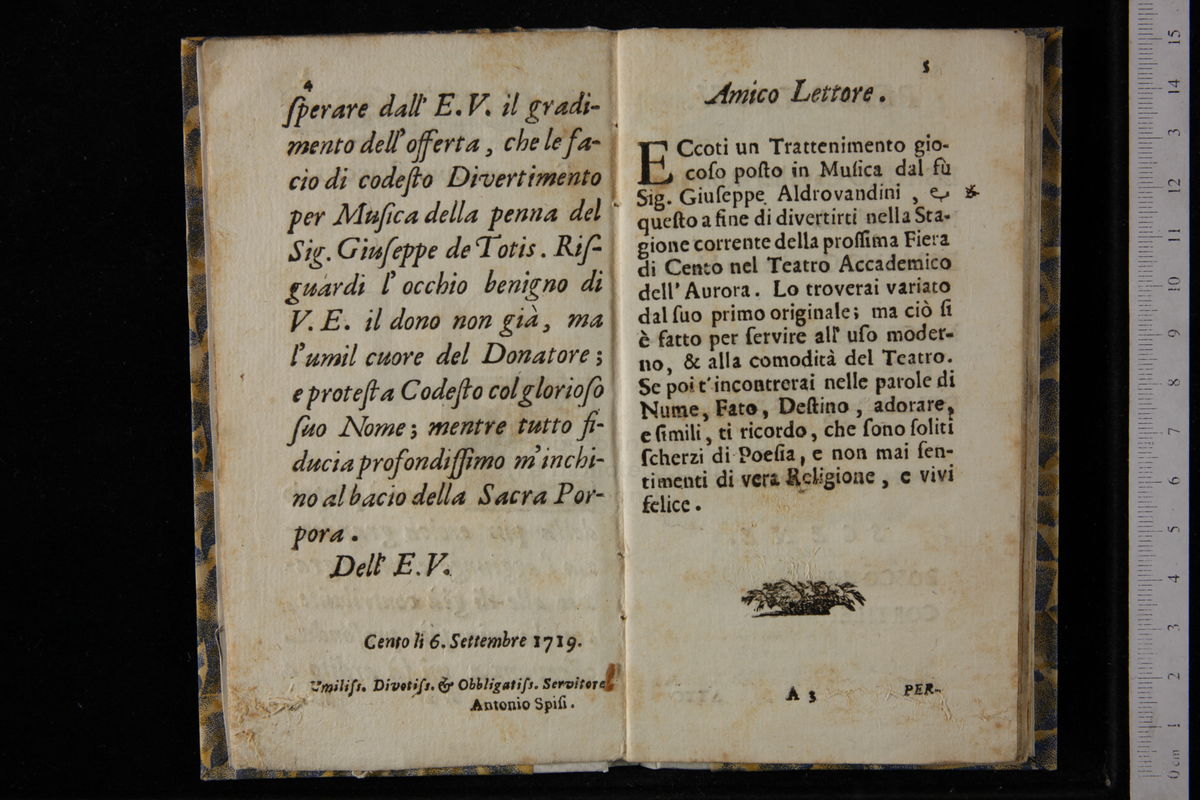 4
ſperare dall' E.V. il gradi-
mento dell' offerta, che le fa-
cio di codeſto Divertimento
per Muſica della penna del
Sig. Giuſeppe de Totis. Riſ-
guardi l' occhio benigno di
V. E. il dono non già, ma
l'umil cuore del Donatore;
e proteſta Codeſto col glorioſo
ſuo Nome; mentre tutto fi-
ducia profondiſſimo m'inchi-
no al bacio della Sacra Por-
pora.
Dell' E.V.
Cento li 6. Settembre 1719.
Umiliſs. Divotiſs. & Obbligatiſs. Servitore
Antonio Spiſi.
5
Amico Lettore.
ECcoti un Trattenimento gio-
coſo poſto in Muſica dal fù
Sig. Giuſeppe Aldrovandini, &
queſto a fine di divertirti nella Sta-
gione corrente della proſſima Fiera
di Cento nel Teatro Accademico
dell' Aurora. Lo troverai variato
dal ſuo primo originale; ma ciò ſi
è fatto per ſervire all' uſo moder-
no, & alla comodità del Teatro.
Se poi t'incontrerai nelle parole di
Nume, Fato, Deſtino, adorare,
e ſimili, ti ricordo, che ſono ſoliti
ſcherzi di Poeſia, e non mai ſen-
timenti di vera Religione, e vivi
felice.
A 3
PER-
15
14
13
12
11
10
9
8
7
6
5
4
3
2
1
0 cm